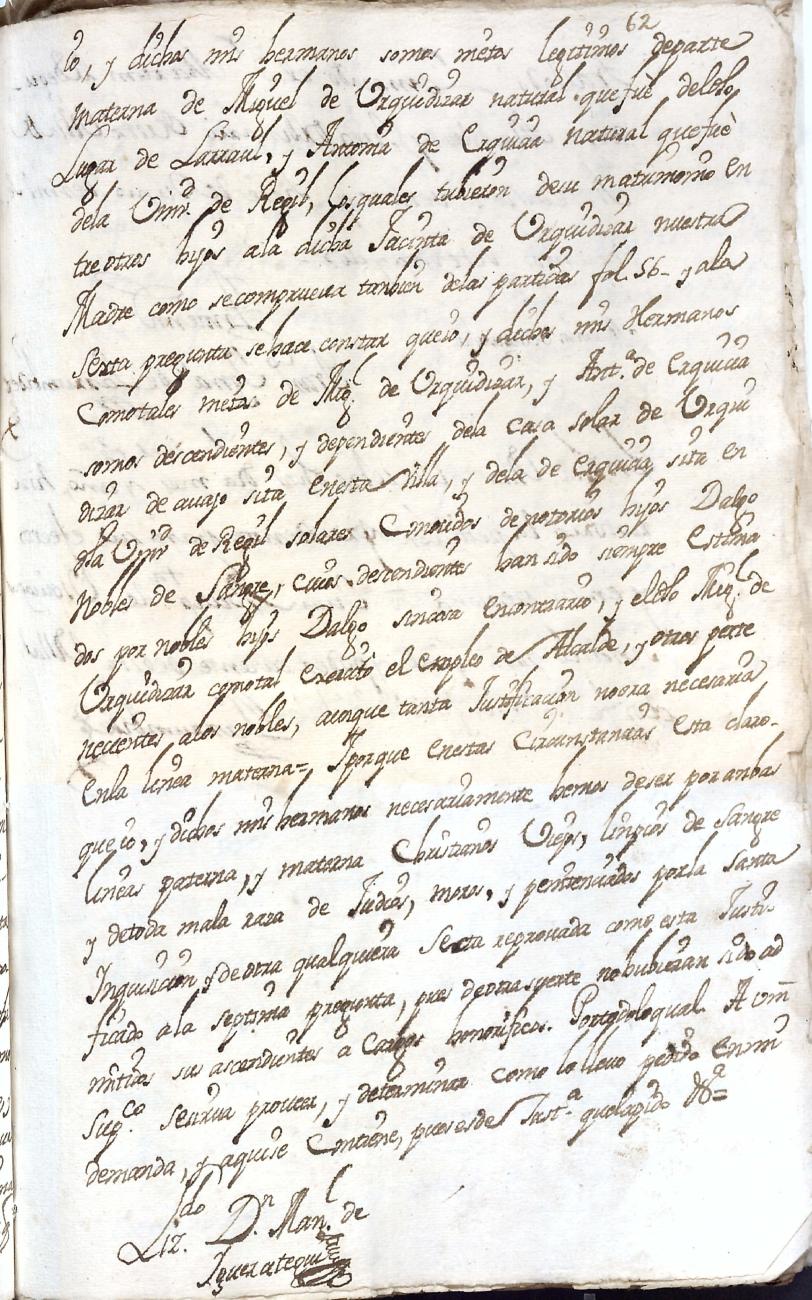 62
io, y dichos mis hermanos somos nietos legitimos departe
materna de Miguel de Urquidizar natural que fue del dho
Lugar de Larraul, y Antonia de Erquicia natural que fuè
dela Univ.d de Regil, los quales tubieron desu matrimonio en
tre otros hijos ala dicha Jacinta de Urquidizar nuestra
Madre como secomprueva tanbien delas partidas fol. 56- y ala
sexta pregunta se hace constar queio, y dichos mis Hermanos
Comotales nietos de Mig.l de Urquidizar, y Ant.a de Erquicia
somos descendientes, y dependientes dela Casa solar de Urqui
dizar de avajo sita Enesta Villa, y dela de Erquicia sita en
dha Univ.d de Regil solares Conocidos de notorios hijos Dalgo
Nobles de Sangre, cuios descendientes han sido siempre Estima
dos por nobles hijos Dalgo sin cosa Encontrario, y eldho Mig.l de
Urquidizar comotal Exercitò el Empleo de Alcalde, y otros perte
necientes alos nobles, aunque tanta Justificacion noera necesaria
Enla linea materna= Yporque Enestas Circunstancias Esta claro
queio, y dichos mis hermanos necesariamente hemos deser por anbas
lineas paterna, y materna Christianos Viejos, linpios de Sangre
y detoda mala raza de Judios, moros, y penitenciados porla Santa
Inquisicion y deotra qualquiera Secta reprovada como esta Justi
ficado ala septima pregunta, pues deotrasuerte nohubieran sido ad
mitidos sus ascendientes à Cargos honorificos. Portodoloqual A Vm
Sup.co sesirva proveer, y determinar como lo llevo pedido Enmi
demanda, y aquise Contiene, pues esde Just.a quelapido &a=
Liz.do D.n Man.l de
Yguerategui